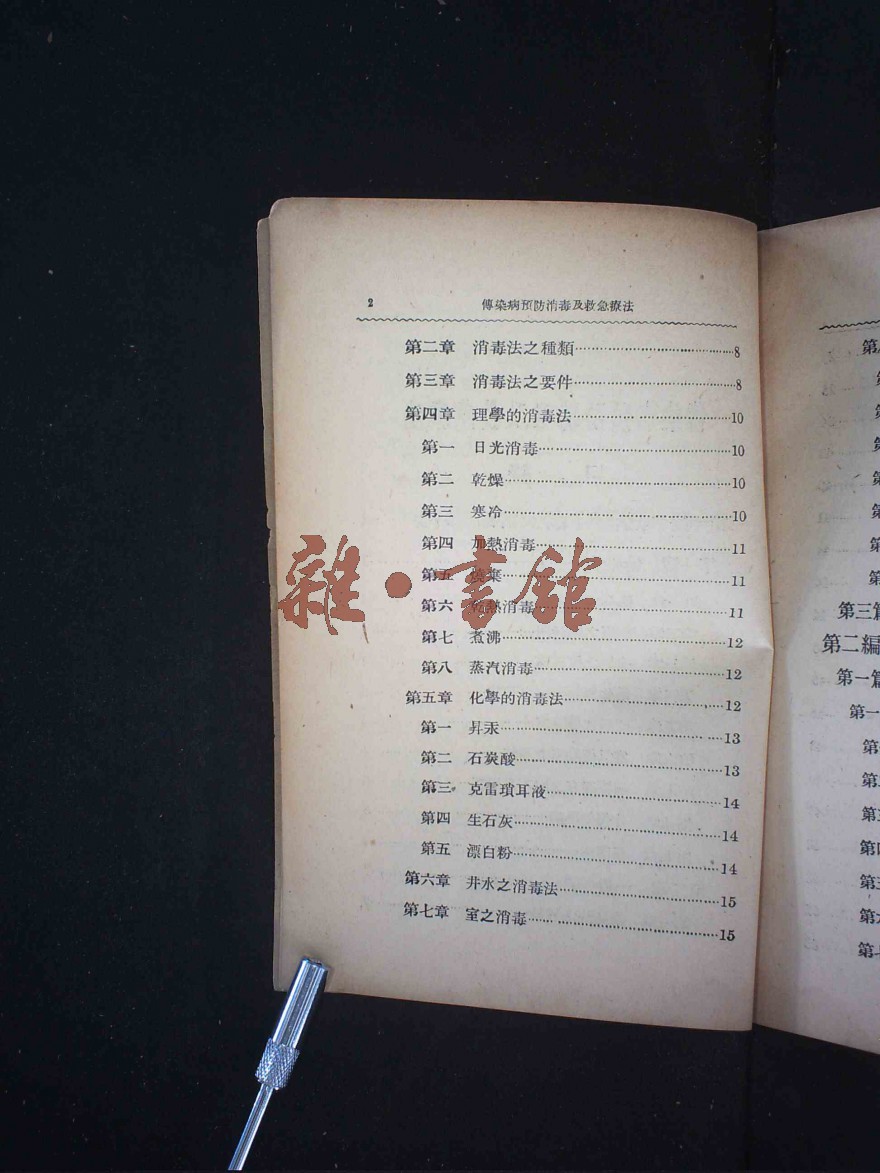 2 傳染病預防消毒及救急療法
第二章 消毒法之種類……8
第三章 消毒法之要件……8
第四章 理學的消毒法……10
第一 日光消毒……10
第二 乾燥……10
第三 寒冷……10
第四 加熱消毒……11
第五 燒棄……11
第六 乾熱消毒……11
第七 煮沸……12
第八 蒸汽消毒……12
第五章 化學的消毒法……12
第一 昇汞……13
第二 石炭酸……13
第三 克雷瑣耳液……14
第四 生石灰……14
第五 漂白粉……14
第六章 井水之消毒法……15
第七章 室之消毒……15
雜·書館
第三篇
第二編
第一篇